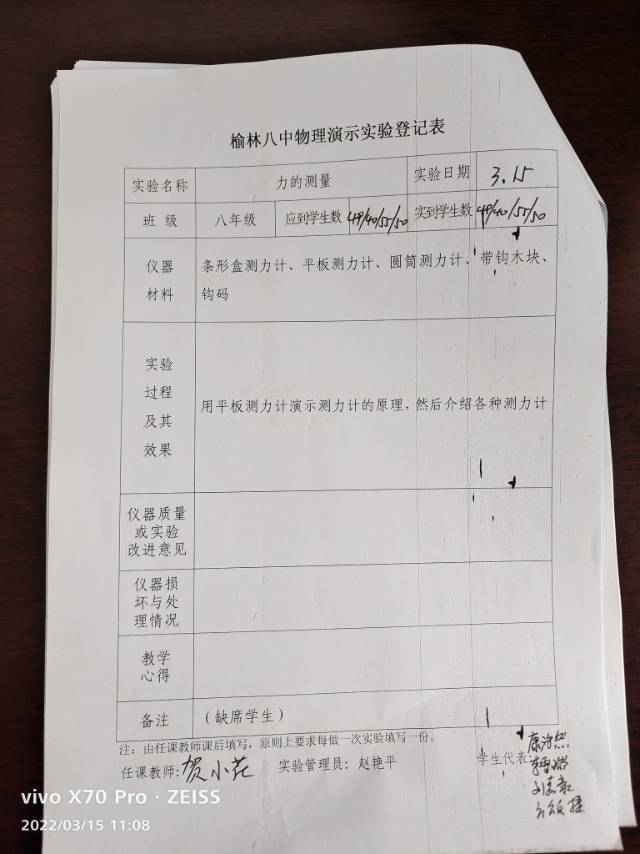 榆林八中物理演示实验登记表
实验名称 力的测量 实验日期 3.15
班 级 八年级 应到学生数 49/40/55/50 实到学生数 49/40/55/50
仪器
材料
条形盒测力计、平板测力计、圆筒测力计、带钩木块、
钩码
实验
过程
及其
效果
用平板测力计演示测力计的原理,然后介绍各种测力计
仪器质量
或实验
改进意见
仪器损
坏与处
理情况
教学
心得
备注 （缺席学生）
注：由任课教师课后填写，原则上要求每做一次实验填写一份。
任课教师:贺小花 实验管理员：赵艳平 学生代表：
vivo X70 Pro · ZEISS
2022/03/15 11:08